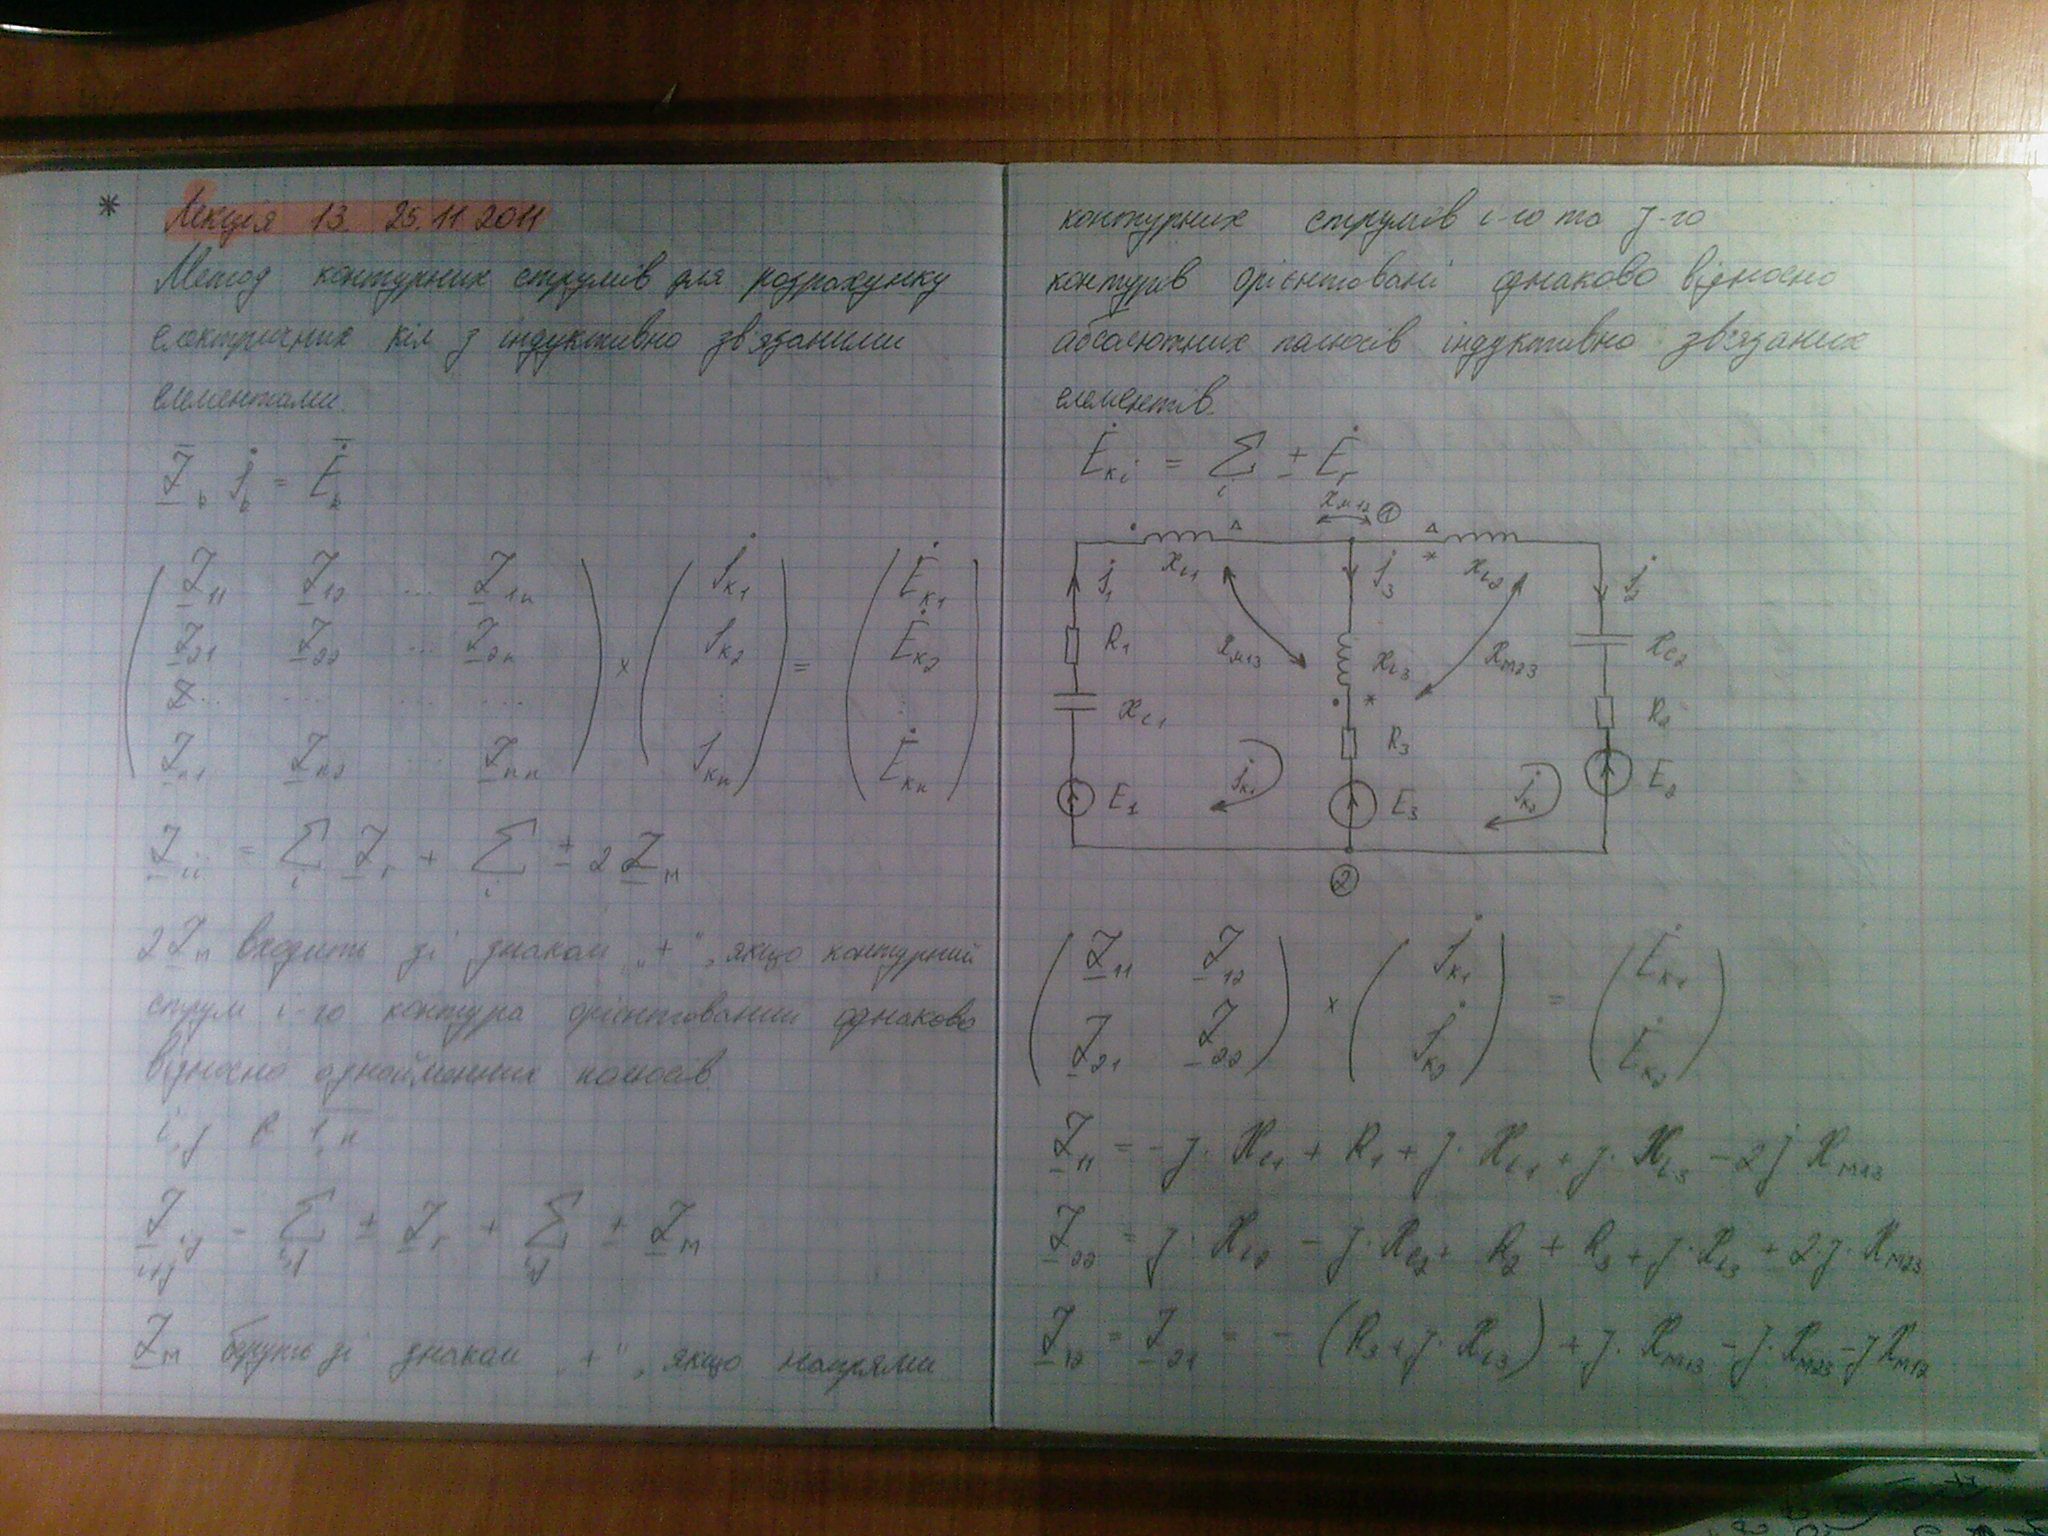 * Лекція 13. 25.11.2011
Метод контурних струмів для розрахунку
електричних кіл з індуктивно зв'язаними
елементами.
Z̲ₖ İₖ = Ėₖ
Z̲₁₁ Z̲₁₂ ... Z̲₁ₙ
Z̲₂₁ Z̲₂₂ ... Z̲₂ₙ
Z̲ₙ₁ Z̲ₙ₂ ... Z̲ₙₙ
×
İк₁
İк₂
⋮
İкₙ
=
Ėк₁
Ėк₂
⋮
Ėкₙ
Z̲ᵢᵢ = Σᵢ Z̲ᵣ + Σᵢ ± 2 Z̲м
2Z̲м входить зі знаком „+“, якщо контурний
струм і-го контура орієнтований однаково
відносно однойменних полюсів.
i, j є 1,n
Z̲ij = Σ ± Z̲ᵣ + Σ ± Z̲м
i≠j i,j i,j
Z̲м беруть зі знаком „+“, якщо напрями
контурних струмів і-го та j-го
контурів орієнтовані однаково відносно
абсолютних полюсів індуктивно зв'язаних
елементів.
Ėкᵢ = Σᵢ ± Ėᵣ
Xм₁₂ ①
XL₁ XL₂
İ₁ İ₃ İ₂
R₁ Xм₁₃ XL₃ Xм₂₃ Xc₂
Xc₁ R₃ R₂
E₁ İк₁ E₃ İк₂ E₂
②
Z̲₁₁ Z̲₁₂
Z̲₂₁ Z̲₂₂
×
İк₁
İк₂
=
Ėк₁
Ėк₂
Z̲₁₁ = -j·Xc₁ + R₁ + j·XL₁ + j·XL₃ - 2j Xм₁₃
Z̲₂₂ = j·XL₂ - j·Xc₂ + R₂ + R₃ + j·XL₃ + 2·j·Xм₂₃
Z̲₁₂ = Z̲₂₁ = -(R₃ + j·XL₃) + j·Xм₁₃ - j·Xм₂₃ - jXм₁₂